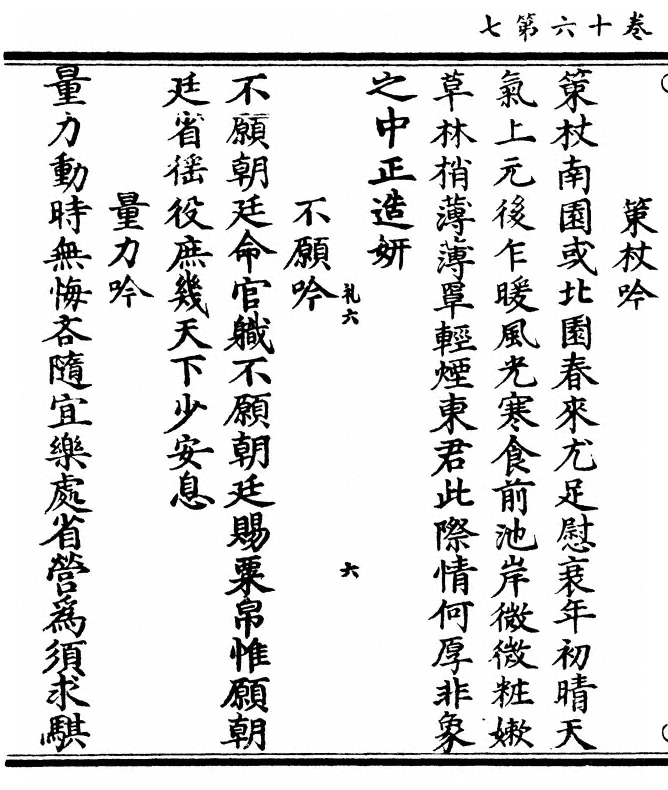 卷十六第七
策杖吟
策杖南園或北園春來尤足慰衰年初晴天
氣上元後乍暖風光寒食前池岸微微粧嫰
草林梢薄薄罩輕煙東君此際情何厚非象
之中正造妍
礼六
六
不願吟
不願朝廷命官軄不願朝廷賜粟帛惟願朝
廷省徭役庶幾天下少安息
量力吟
量力動時無悔吝隨宜樂處省營爲須求騏